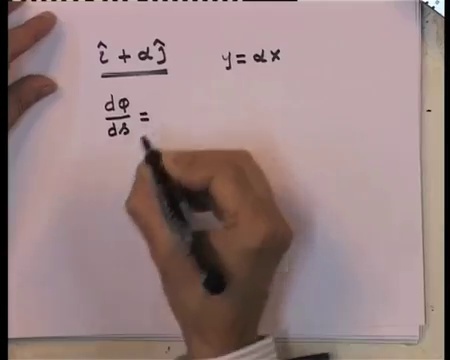 î + αĵ y = αx
dφ/ds =